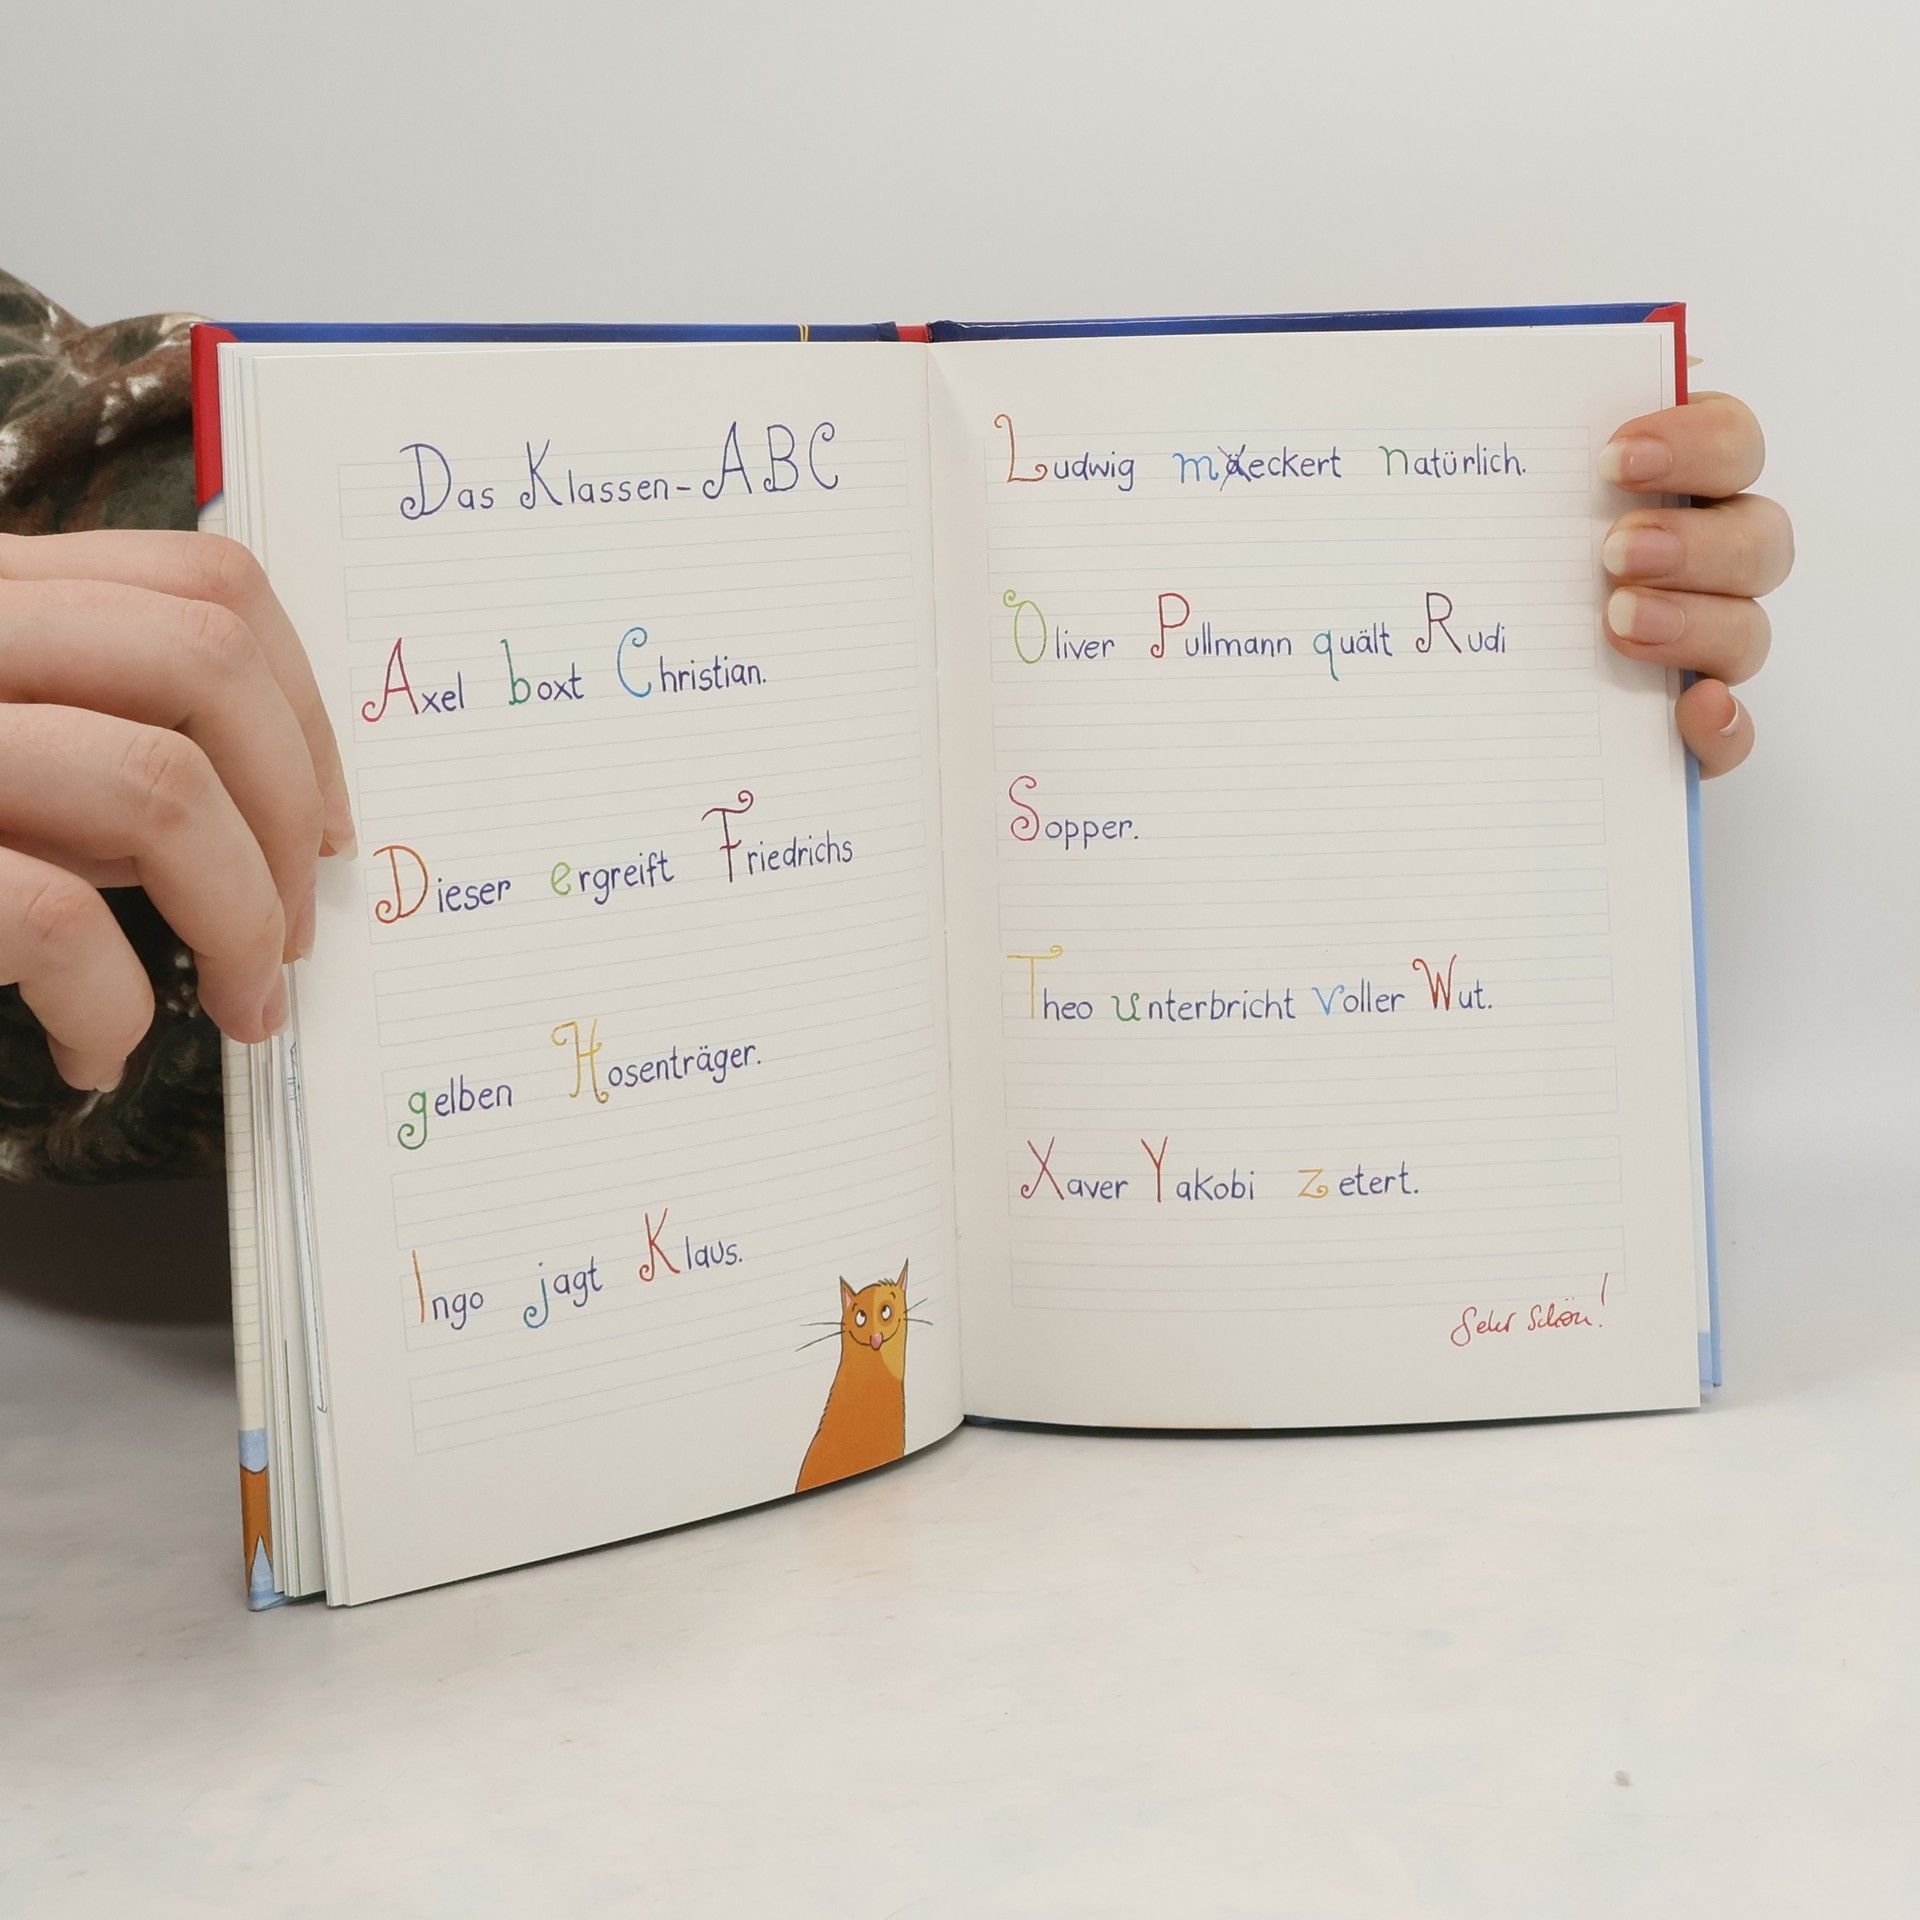 Das Klassen-ABC
Axel boxt Christian.
Dieser ergreift Friedrichs
gelben Hosenträger.
Ingo jagt Klaus.
Ludwig meckert natürlich.
Oliver Pullmann quält Rudi
Sopper.
Theo unterbricht voller Wut.
Xaver Yakobi zetert.
Sehr schön!